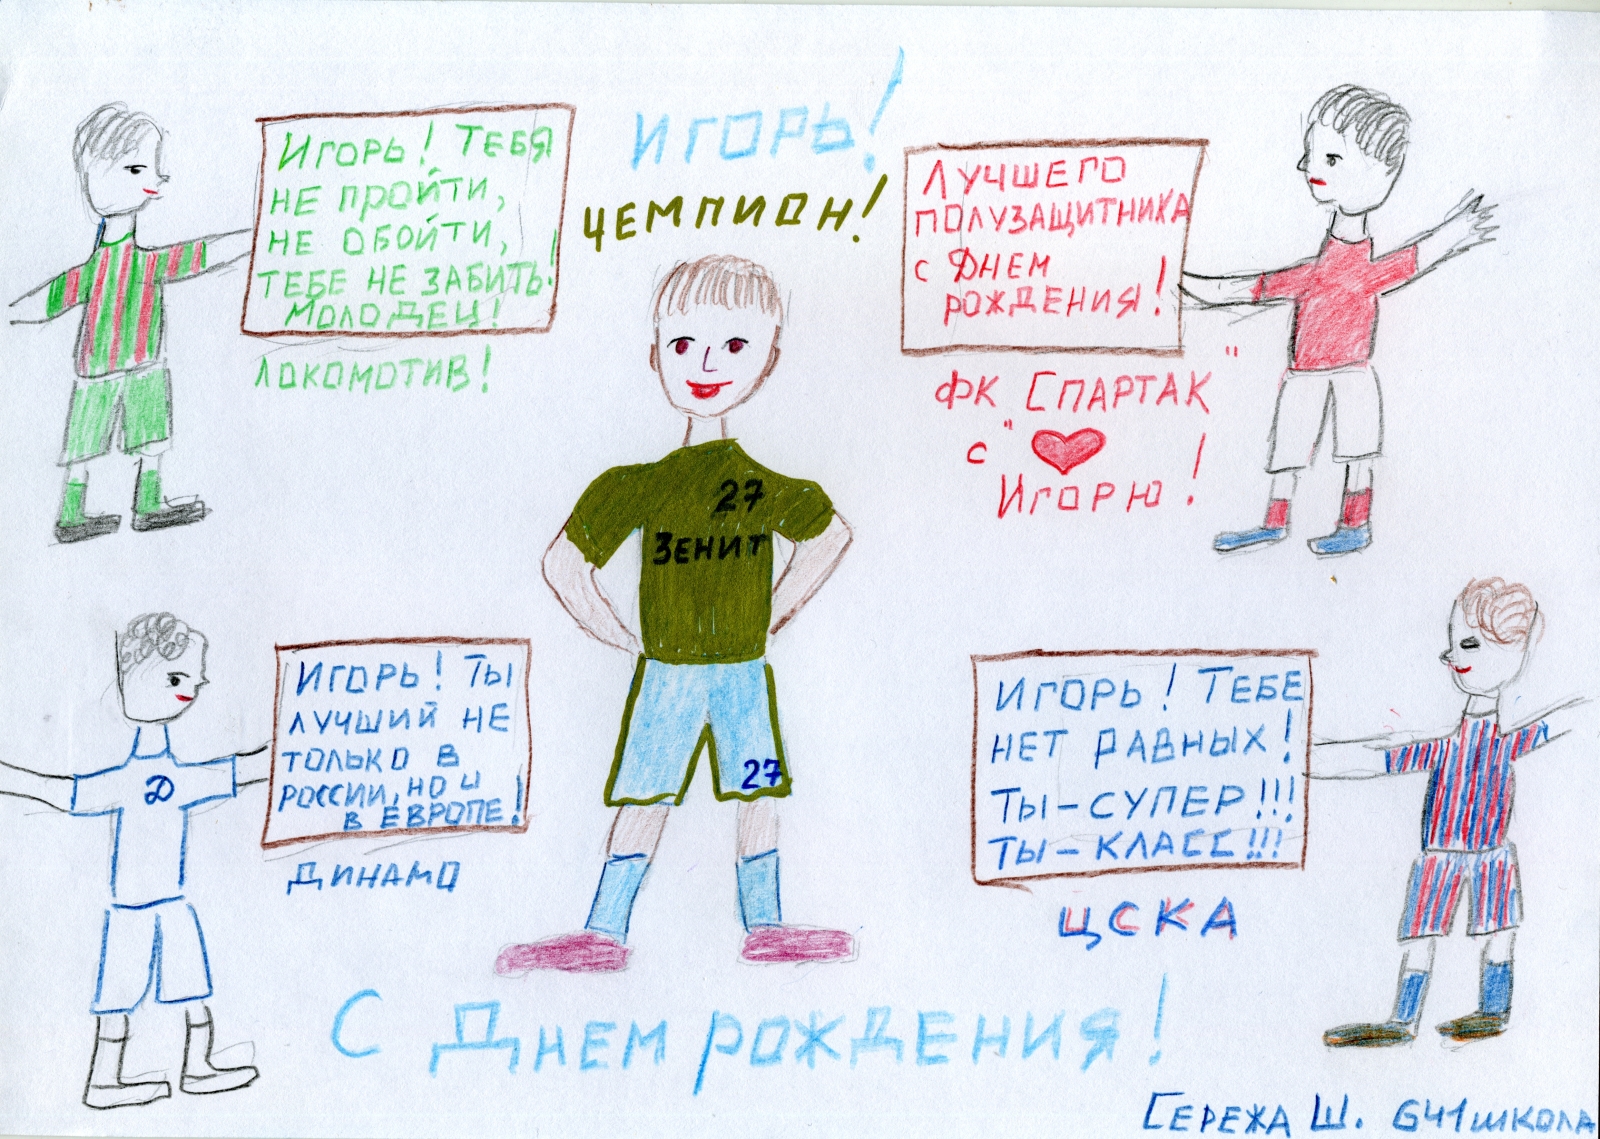 Игорь!
Чемпион!
Игорь! Тебя
не пройти,
не обойти,
тебе не забить!
Молодец!
Локомотив!
Лучшего
полузащитника
с Днем
рождения!
ФК "Спартак"
с ❤
Игорю!
27
Зенит
27
Д
Игорь! Ты
лучший не
только в
России, но и
в Европе!
Динамо
Игорь! Тебе
нет равных!
Ты - супер!!!
Ты - класс!!!
ЦСКА
С Днем рождения!
Сережа Ш. 641 школа